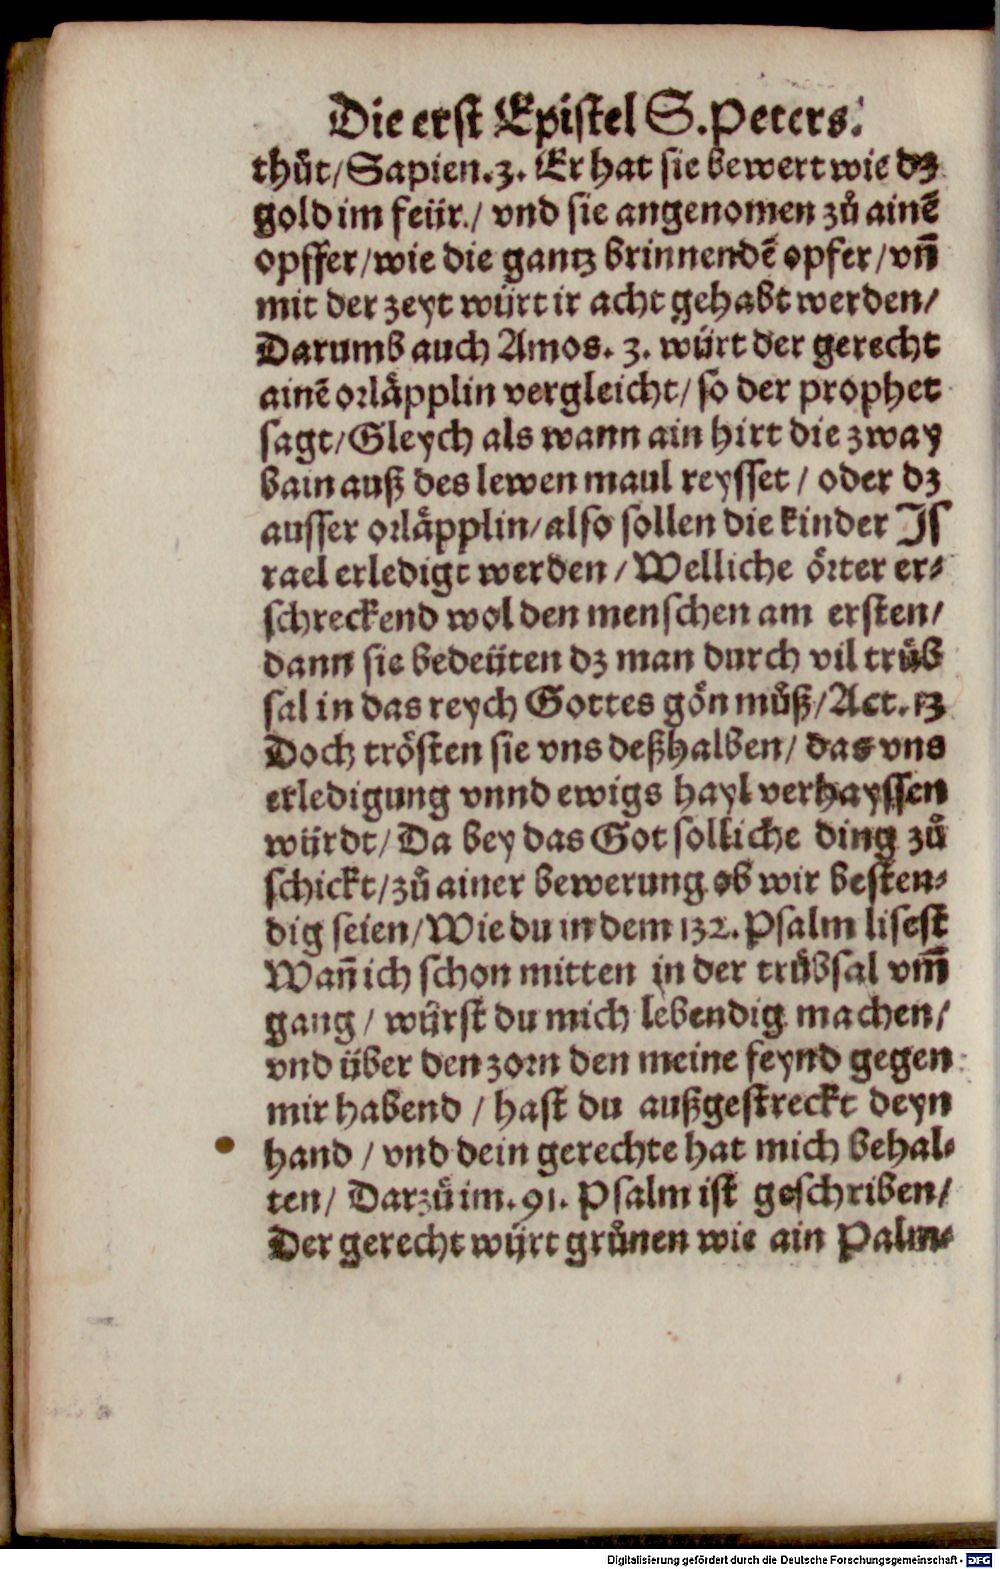 Die erst Epistel S. Peters.
thůt/ Sapien. 3. Er hat sie bewert wie dz
gold im feür./ vnd sie angenomen zů ainē
opffer/ wie die gantz brinnendē opfer/ vñ
mit der zeyt würt ir acht gehabt werden/
Darumb auch Amos. 3. würt der gerecht
ainē orläpplin vergleicht/ so der prophet
sagt/ Gleych als wann ain hirt die zway
bain auß des lewen maul reysset / oder dz
ausser orläpplin/ also sollen die kinder Js
rael erledigt werden / Welliche örter er⸗
schreckend wol den menschen am ersten/
dann sie bedeüten dz man durch vil trůb
sal in das reych Gottes gön můß/ Act. 13
Doch trösten sie vns deßhalben/ das vns
erledigung vnnd ewigs hayl verhayssen
würdt/ Da bey das Got solliche ding zů
schickt/ zů ainer bewerung ob wir besten⸗
dig seien/ Wie du in dem 132. Psalm lisest
Wañ ich schon mitten in der trůbsal vm̃
gang / würst du mich lebendig machen/
vnd über den zorn den meine feynd gegen
mir habend / hast du außgestreckt deyn
hand / vnd dein gerechte hat mich behal⸗
ten/ Darzů im. 91. Psalm ist geschriben/
Der gerecht würt grůnen wie ain Palm⸗
Digitalisierung gefördert durch die Deutsche Forschungsgemeinschaft - DFG